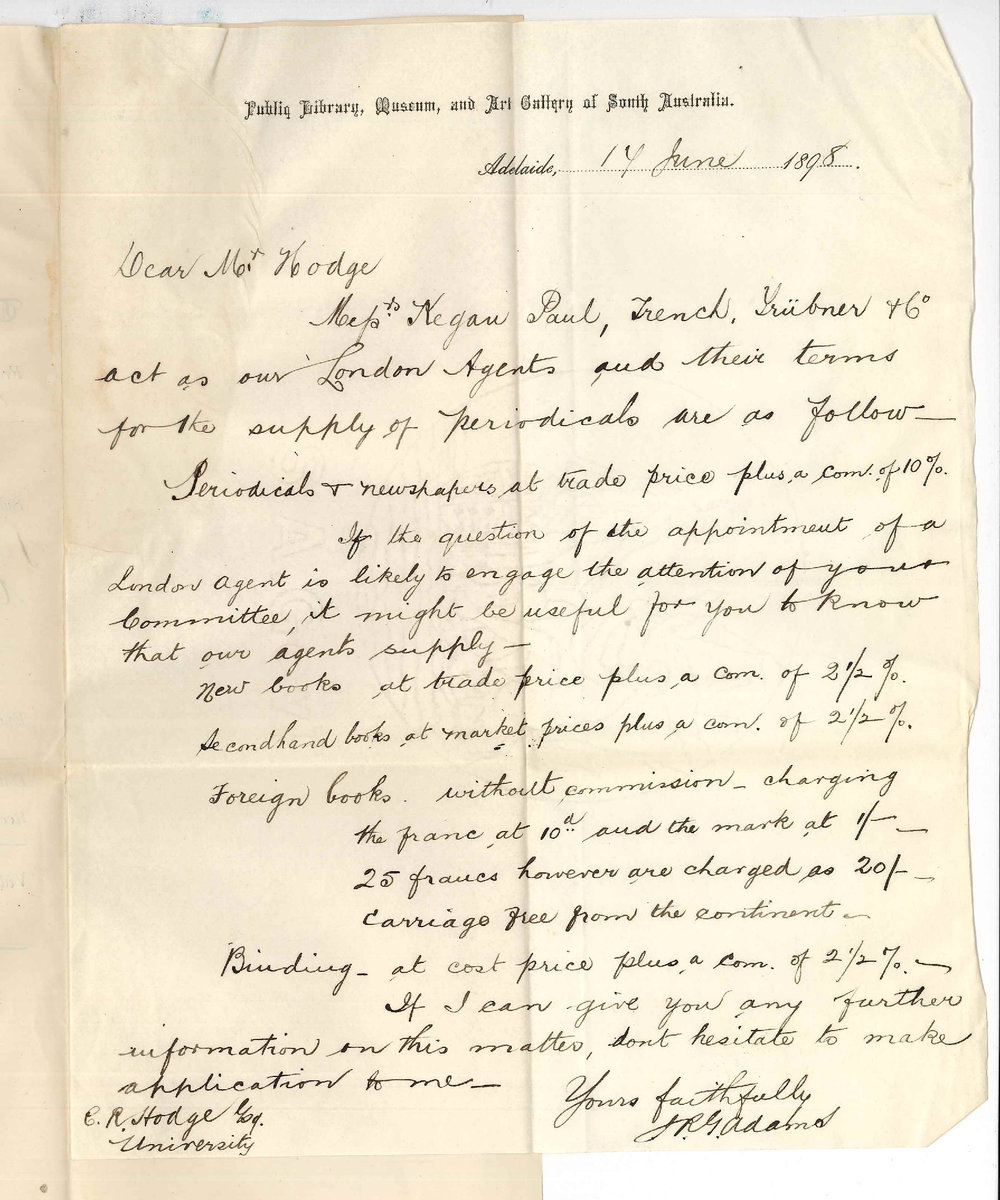 Public Library, Museum, and Art Gallery of South Australia.
Adelaide, 14 June 1898.
Dear Mr Hodge
Messrs Kegan Paul, Trench, Trübner & Co
act as our London Agents and their terms
for the supply of periodicals are as follow—
Periodicals & newspapers at trade price plus a com. of 10%.
If the question of the appointment of a
London Agent is likely to engage the attention of your
Committee, it might be useful for you to know
that our agents supply—
New books at trade price plus a com. of 2 1/2 %.
Secondhand books at market prices plus a com. of 2 1/2 %.
Foreign books. without commission - charging
the franc at 10d and the mark at 1/- —
25 francs however are charged as 20/- —
Carriage free from the continent —
Binding - at cost price plus a com. of 2 1/2 %. —
If I can give you any further
information on this matter, dont hesitate to make
application to me —
Yours faithfully
J R G Adams
C. R. Hodge Esq.
University